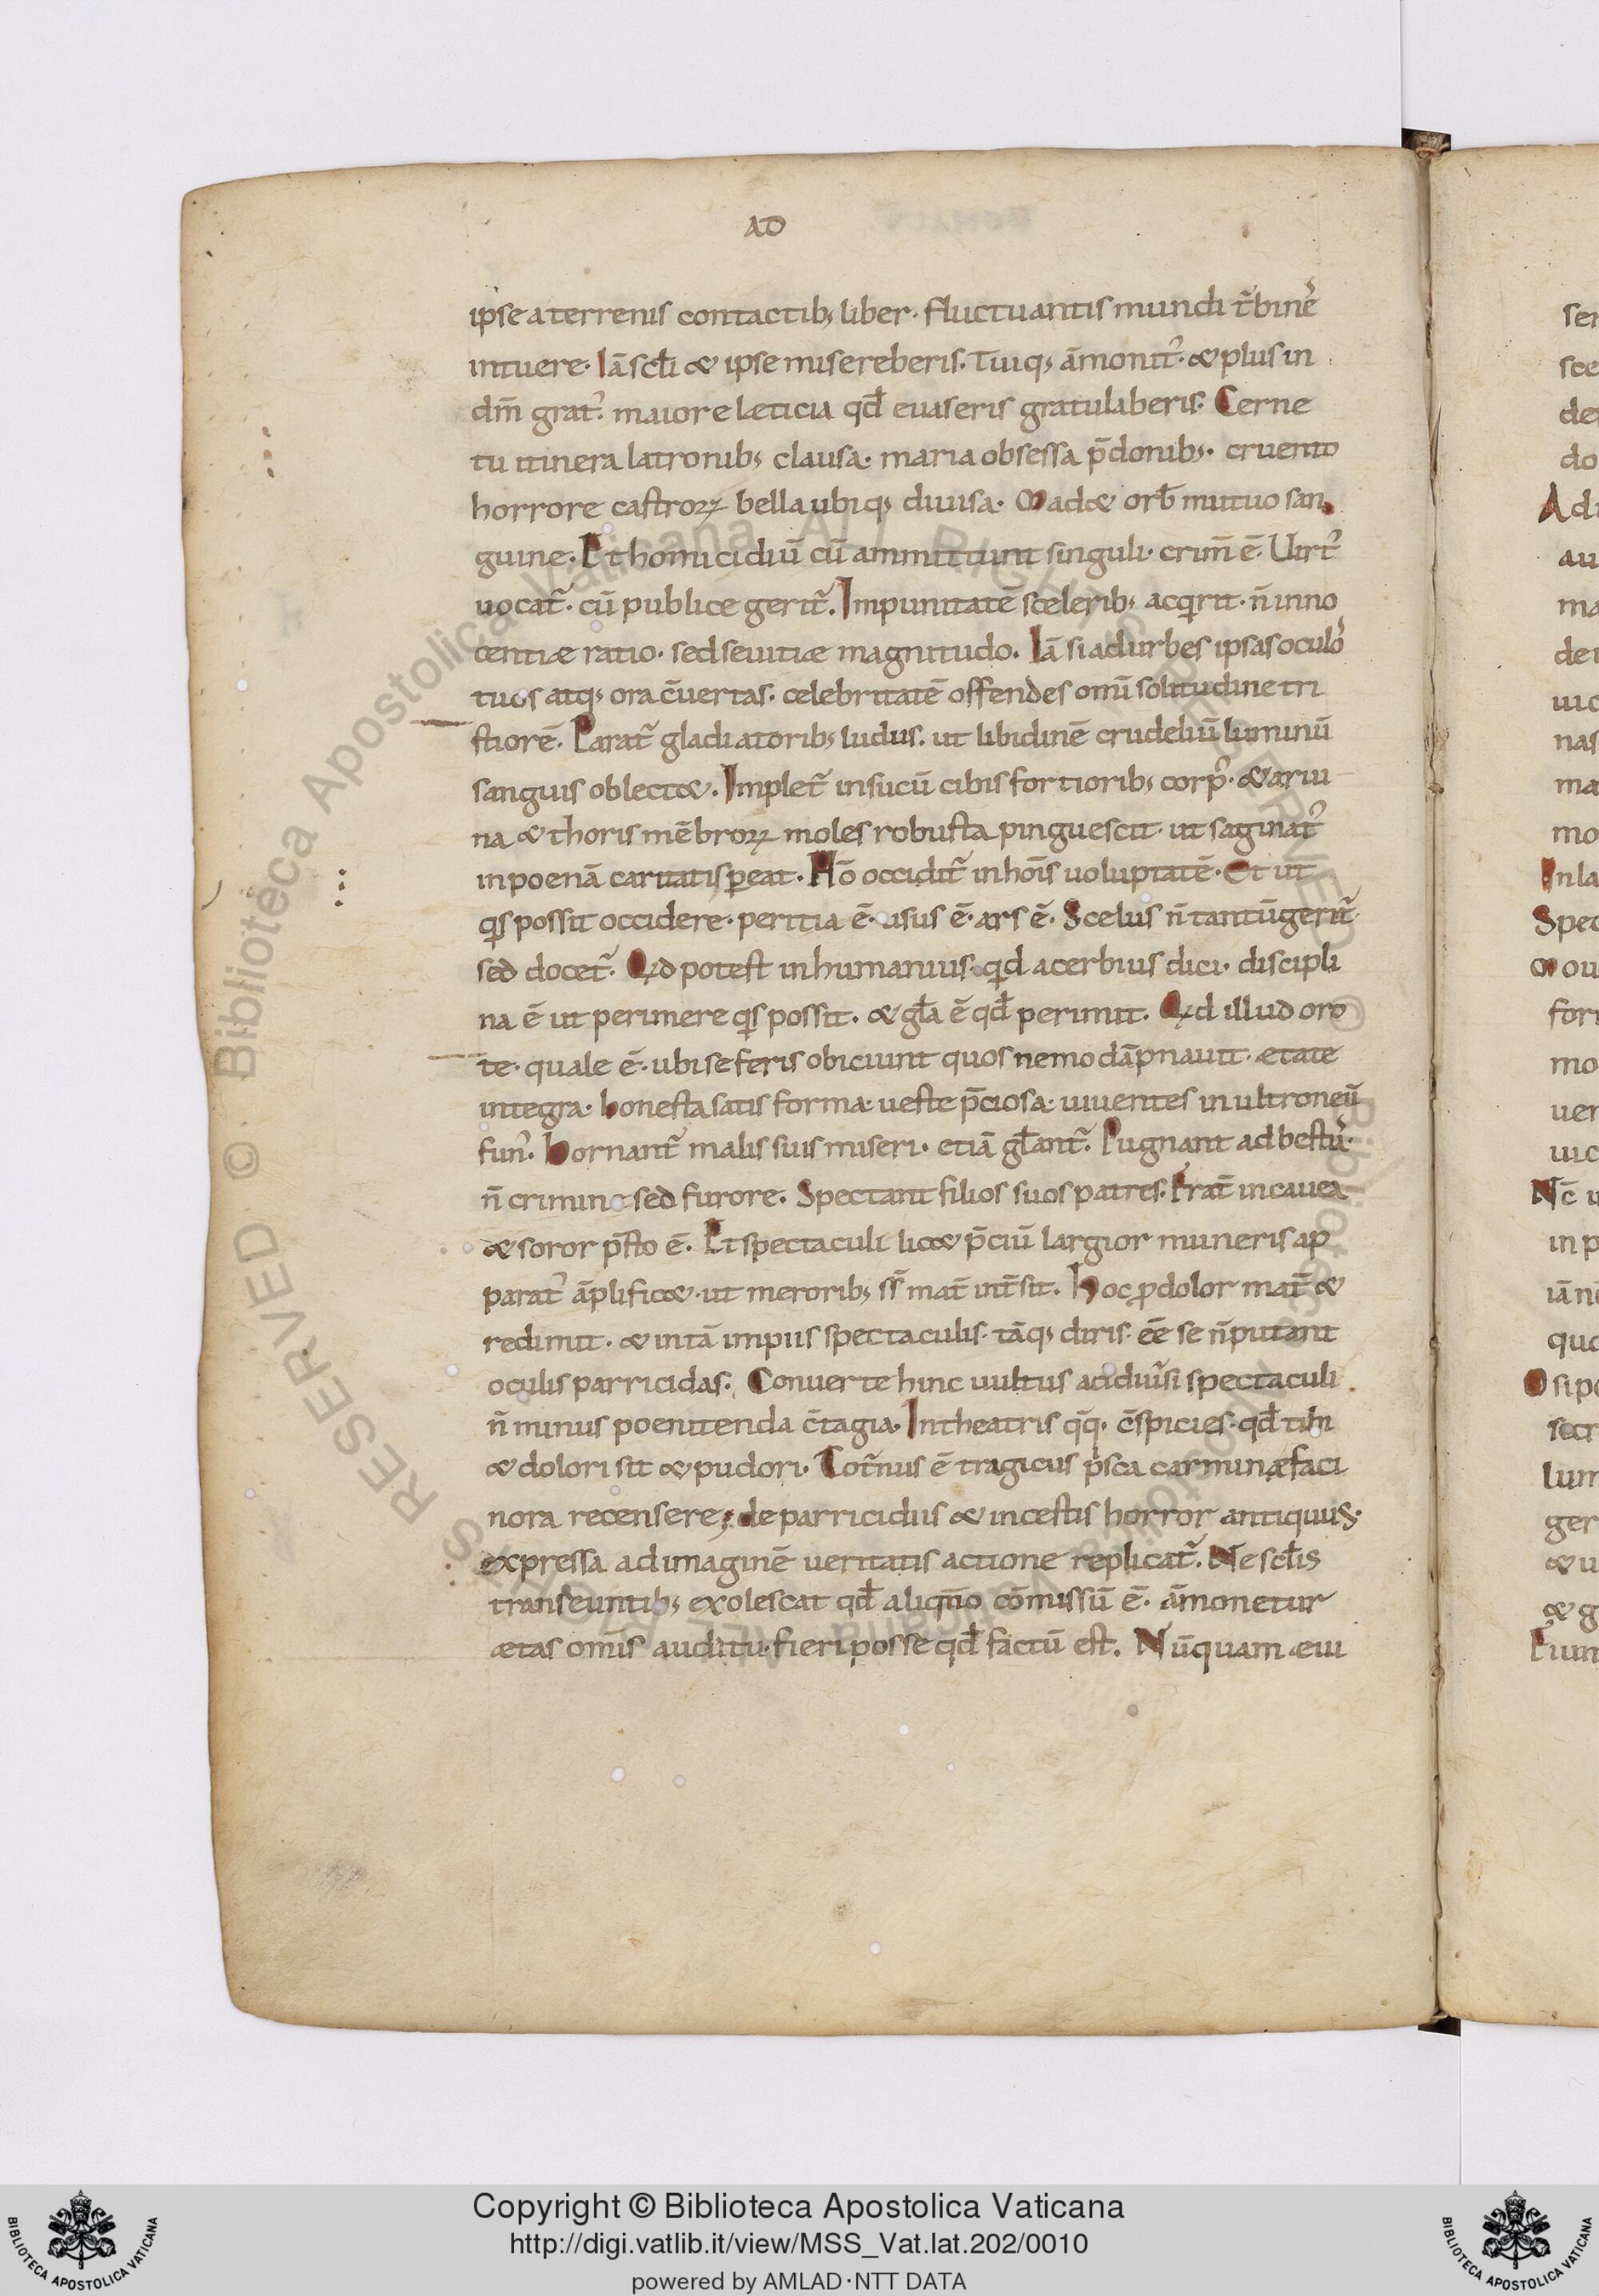 AD
ipse a terrenis contactib; liber· fluctuantis mundi t̄bineˀ
intuere· Iā scl̄i & ipse misereberis. Tuiq; ām̄onitˀ· & plus in
dm̄ gratˀ· maiore lęticia qd̄ euaseris gratulaberis· Cerne
tu itinera latronib; clausa· maria obsessa p̄donib;· cruento
horrore castroꝝ bella ubiq; diuisa· Mad& orb̄ mutuo san
guine· Et homicidiū cū ammittunt singuli· crim̄ ē· Uirtˀ
uocat̄· cū publice gerit̄. Impunitatē sceleribˀ acqrit· n̄ inno
centiæ ratio· sed seuitiæ magnitudo. Iā si ad urbes ipsas oculoˀ
tuos atq; ora c̄uertas· celebritatē offendes omī solitudine tri
stiorē· Parat̄ gladiatorib; ludus. ut libidinē crudeliū luminū
sanguis oblect&. Implet̄ in sucū cibis fortiorib; corpˀ· & arui
na & thoris mēbroꝝ moles robusta pinguescit· ut saginatˀ
in poenā caritatis pereat· Hō occidit̄ in hoīs uoluptatē· Et ut
qs possit occidere· peritia ē· usus ē· ars ē. Scelus n̄ tantū gerit̄·
sed docet̄. Qd potest inhumanius· qd acerbius dici· discipli
na ē ut perimere qs possit. & gl̄a ē qd̄ perimit. Qd illud oro
te· quale ē· ubi se feris obiciunt quos nemo dāpnauit· ętate
integra· honesta satis forma· ueste p̄ciosa· uiuentes in ultroneū
funˀ. hornant̄ malis suis miseri· etiā gl̄ant̄. Pugnant ad bestiˀ·
n̄ crimine sed furore. Spectant filios suos patres· Frat̄ in cauea
& soror p̄sto ē. Et spectaculi lic& p̄ciū largior muneris ap
paratˀ āplific&· ut meroribˀ ss̄ mat̄ int̄sit. hoc p dolor mat̄ &
redimit· & in tā impiis spectaculis· tāq; diris· eē se n̄ putant
oculis parricidas. Conuerte hinc uultus ad diuīsi spectaculi
n̄ minus poenitenda c̄tagia· In theatris q̄q̄· c̄spicies· qd̄ tibi
& dolori sit & pudori· Cot̄nus ē tragicus p̄sca carminæ faci
nora recensere; de parricidiis & incestis horror antiquus·
expressa ad imaginē ueritatis actione replicat̄. Ne scl̄is
transeuntib; exolescat qd̄ aliqn̄o cōmissū ē· ām̄onetur
ætas omīs auditu· fieri posse qd̄ factū est. Nūquam æui
Copyright © Biblioteca Apostolica Vaticana
http://digi.vatlib.it/view/MSS_Vat.lat.202/0010
powered by AMLAD·NTT DATA